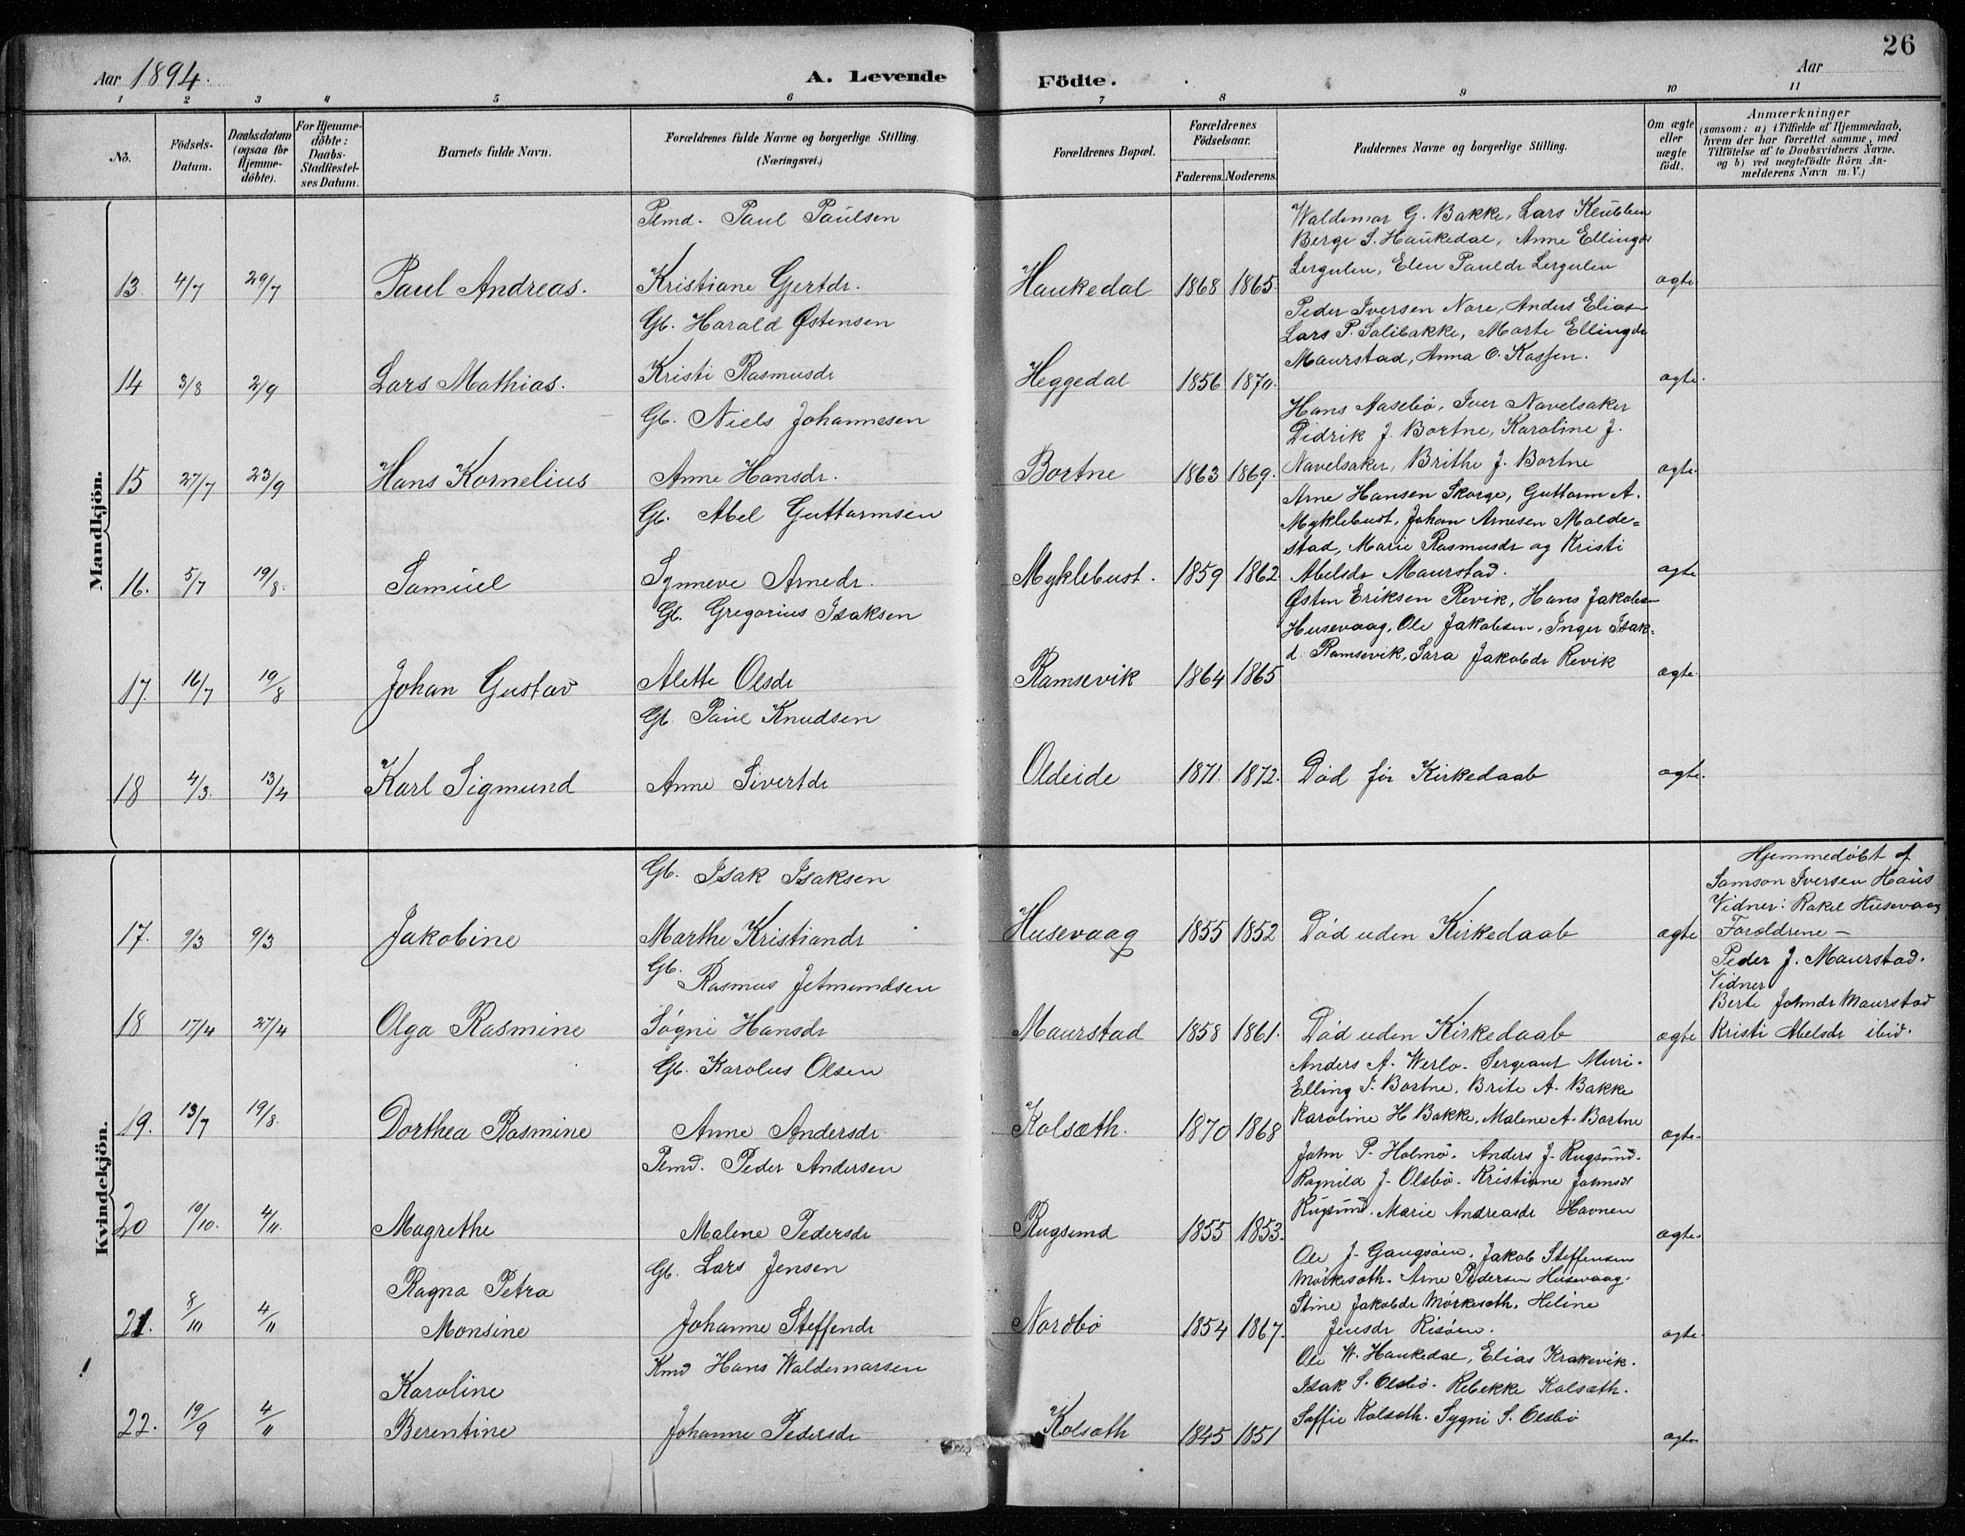 26
Aar 1894.
A. Levende Födte.
Aar
1 2 3 4 5 6 7 8 9 10 11
No.
Födsels-Datum.
Daabsdatum (ogsaa for Hjemme-döbte).
For Hjemme-döbte: Daabs-Stadfæstel-ses Datum.
Barnets fulde Navn.
Forældrenes fulde Navne og borgerlige Stilling. (Næringsvei.)
Forældrenes Bopæl.
Forældrenes Födselsaar.
Faderens. Moderens.
Faddernes Navne og borgerlige Stilling.
Om ægte eller uægte födt.
Anmærkninger
(saasom: a) i Tilfælde af Hjemmedaab, hvem der har forrettet samme, med Tilföielse af to Daabsvidners Navne, og b) ved uægtefödte Börn An-melderens Navn m. V.)
Mandkjön.
Plmd. Paul Paulsen
Waldemar G. Bakke, Lars Klubben
Berge S. Haukedal, Anne Ellingdr
Lergulen, Elen Pauldr Lergulen
13. 4/7 29/7 Paul Andreas. Kristiane Gjertdr. Haukedal 1868 1865. ægte
Gb. Harald Østensen
Peder Iversen Nore, Anders Elias
Lars P. Solibakke, Marte Ellingdr
Maurstad, Anna O. Kassen.
14 3/8 2/9 Lars Mathias. Kristi Rasmusdr Heggedal 1856 1870. ægte.
Gb. Niels Johannesen
Hans Aasebø, Iver Navelsaker
Didrik J. Bortne, Karoline J.
Navelsaker, Brithe J. Bortne
15 27/7 23/9 Hans Kornelius Anne Hansdr. Bortne 1863 1869. ægte.
Gb. Abel Guttormsen
Arne Hansen Skorge, Guttorm A.
Myklebust, Johan Arnesen Malde=
stad, Marie Rasmusdr og Kristi
Abelsdr Maurstad.
16. 5/7 19/8. Samuel Synneve Arnedr. Myklebust. 1859 1862. ægte
Gb. Gregorius Isaksen
Østen Eriksen Revik, Hans Jakobsen
Husevaag, Ole Jakobsen, Inger Isak=
d. Ramsevik, Sara Jakobdr Revik
17. 16/7 19/8 Johan Gustav Alette Olsdr Ramsevik 1864 1865 ægte.
Gb. Paul Knudsen
18 4/3. 13/4 Karl Sigmund Anne Sivertdr Oldeide 1871. 1872. Død før Kirkedaab ægte.
Kvindekjön.
Gb. Isak Isaksen
Hjemmedøbt af
Samson Iversen Haus
Vidner: Rakel Husevaag
17. 9/3 9/3 Jakobine Marthe Kristiandr Husevaag 1855 1852 Død uden Kirkedaab ægte Forældrene —
Gb. Rasmus Jetmundsen
Peder J. Maurstad.
Vidner
Berte Johndr Maurstad
18 17/4 27/4 Olga Rasmine Søgni Hansdr Maurstad 1858 1861. Død uden Kirkedaab ægte Kristi Abelsdr ibid.
Gb. Karolus Olsen
Anders A. Werlo. Sergeant Muri.
Elling J. Bortne, Brite A. Bakke
Karoline H Bakke, Malene A. Bortne
19. 13/7 19/8. Dorthea Rasmine Anne Andersdr. Kolsæth. 1870 1868 ægte.
Plmd. Peder Andersen
John P. Holmø. Anders J. Rugsund.
Ragnild J. Olsbø. Kristiane Johnsdr
Rugsund. Marie Andreasdr Havnen
20 10/10. 4/11. Magrethe Malene Pedersdr Rugsund 1855 1853. ægte.
Gb. Lars Jensen
Ole J. Gangsøen, Jakob Steffensen
Mörkesæth. Arne Pedersen Husevaag.
Stine Jakobdr Mörkesæth, Heline
Jensdr Risøen.
Ragna Petra
21. 8/10 4/11 Monsine Johanne Steffendr Nordbø 1854 1867. ægte.
Kmd Hans Waldemarsen
Ole W. Haukedal, Elias Krakevik.
Isak S. Olsbø. Rebekke Kolsæth.
Soffie Kolsæth. Sygni S. Olsbø
Karoline
22. 19/9 4/11 Berentine Johanne Pedersdr Kolsæth 1845 1851 ægte